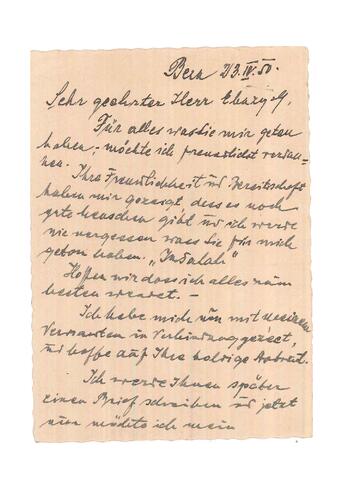 Bern 23.IV.50.
Sehr geehrter Herr
Für alles was sie mir getan
haben, möchte ich freundlichst verdan-
ken.
Ihre Freundlichkeit und Bereitschaft
haben mir gezeigt, dass es noch
gute menschen gibt und ich werde
nie vergessen was Sie für mich
getan haben.
Hoffen wir dass ich alles zum
besten wendet. –
Ich habe mich nun mit meinen
Verwandten in Verbindung gesetzt,
und hoffe auf Ihre baldige Antwort.
Ich werde Ihnen später
einen Brief schreiben und jetzt
nur möchte ich mein